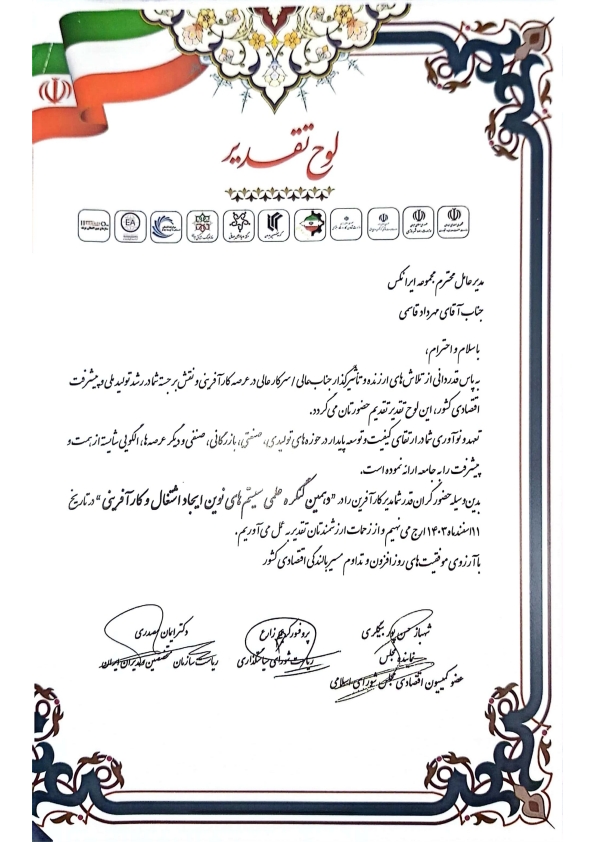 لوح تقدیر
مدیرعامل محترم مجموعه ایرانکس
جناب آقای مهرداد قاسمی
باسلام و احترام،
به پاس قدردانی از تلاش‌های ارزنده و تأثیرگذار جناب‌عالی / سرکارعالی در عرصه کارآفرینی و نقش برجسته شما در رشد تولید ملی و پیشرفت
اقتصادی کشور، این لوح تقدیر تقدیم حضورتان می‌گردد.
تعهد و نوآوری شما در ارتقای کیفیت و توسعه پایدار در حوزه‌های تولیدی، صنعتی، بازرگانی، صنفی و دیگر عرصه‌ها، الگویی شایسته از همت و
پیشرفت را به جامعه ارائه نموده است.
بدین‌وسیله حضور گران‌قدر شما مدیر کارآفرین را در "دهمین کنگره علمی سیستم‌های نوین ایجاد اشتغال و کارآفرینی" در تاریخ
۱۱ اسفندماه ۱۴۰۳ ارج می‌نهیم و از زحمات ارزشمندتان تقدیر به عمل می‌آوریم.
با آرزوی موفقیت‌های روزافزون و تداوم مسیر بالندگی اقتصادی کشور
شهباز حسن پور بیگلری
نماینده مجلس
عضو کمیسیون اقتصادی مجلس شورای اسلامی
پروفسور زارع
ریاست شورای سیاستگذاری
دکتر ایمان صدری
ریاست سازمان متخصصین و مدیران ایران
EA